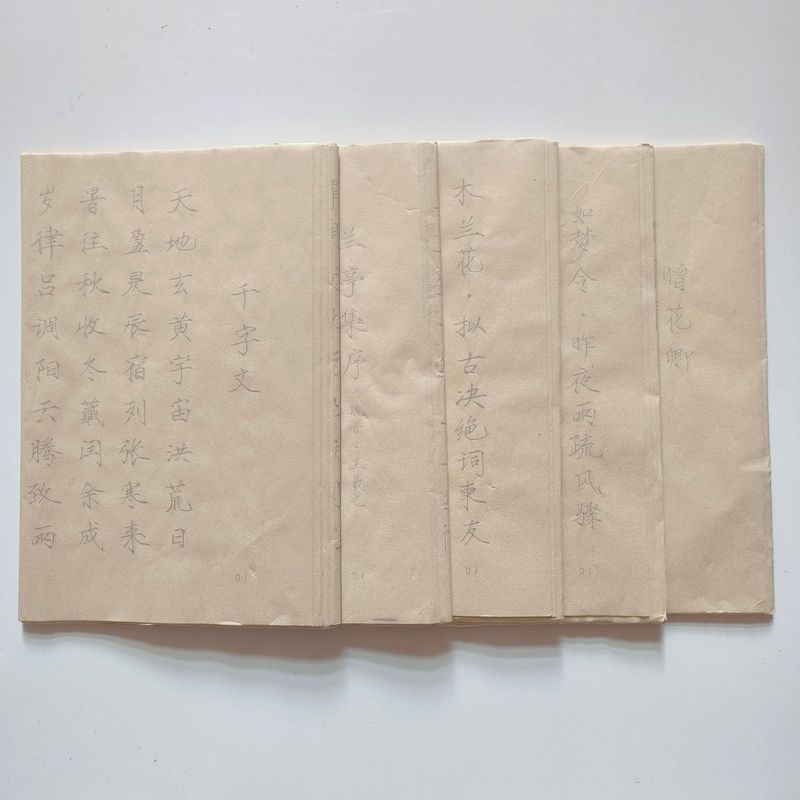 千字文
天地玄黄宇宙洪荒日
月盈昃辰宿列张寒来
暑往秋收冬藏闰余成
岁律吕调阳云腾致雨
01
兰亭集序
魏晋·王羲之
01
木兰花·拟古决绝词柬友
01
如梦令·昨夜雨疏风骤
02
赠花卿